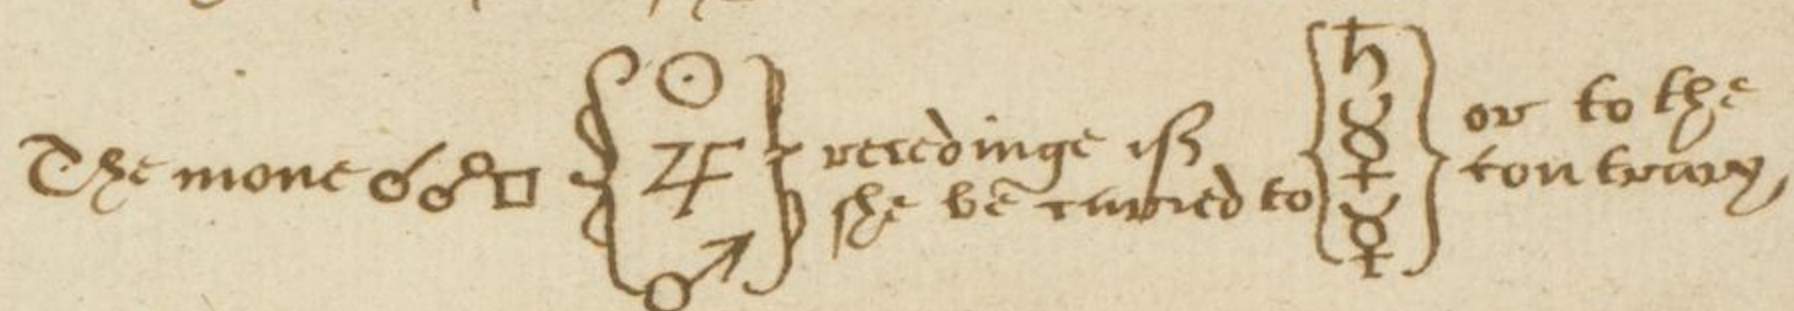 The mone ☌☍□
☉
♃
♂
recedinge iff
she be carried to
♄
☿
☿
or to the
contrary,